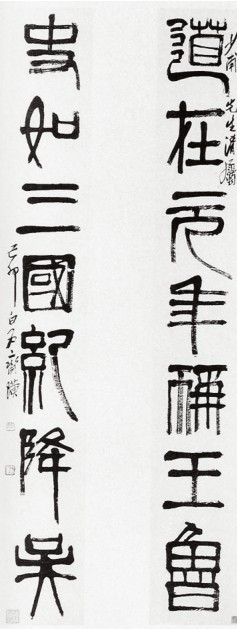 道在元年稱王魯
少甫先生清屬
史如三國紀降吳
己卯白石齊璜